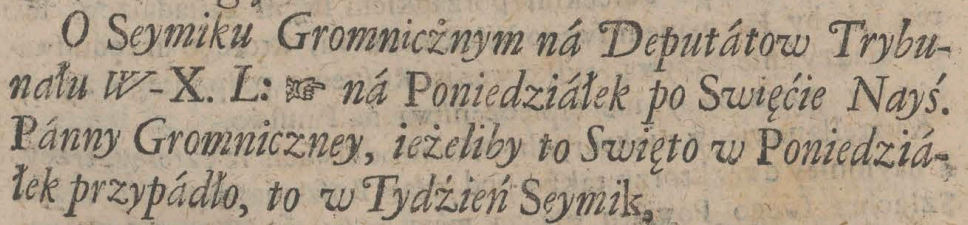 O Seymiku Gromnicżnym ná Deputátow Trybu-
nału W-X. L: ☞ ná Poniedziáłek po Swięćie Nayś.
Pánny Gromniczney, ieżeliby to Swięto w Poniedziá-
łek przypádło, to w Tydżień Seymik,